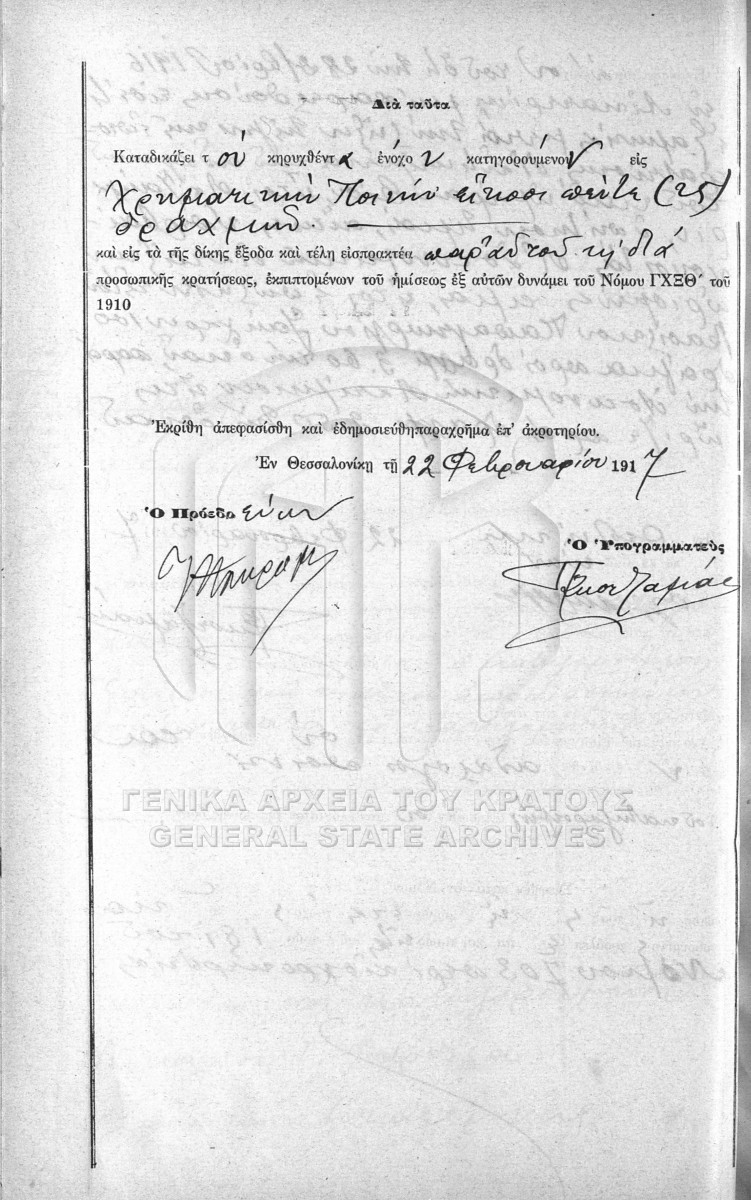 Διὰ ταῦτα
Καταδικάζει τ ὸν κηρυχθέντα ἔνοχον κατηγορούμενον εἰς
Χρηματικὴν Ποινὴν εἴκοσι πέντε (25)
δραχμῶν.
καὶ εἰς τὰ τῆς δίκης ἔξοδα καὶ τέλη εἰσπρακτέα παρ' αὐτοῦ κ διὰ
προσωπικῆς κρατήσεως, ἐκπιπτομένων τοῦ ἡμίσεως ἐξ αὐτῶν δυνάμει τοῦ Νόμου ΓΧΞΘ´ τοῦ
1910
Ἐκρίθη ἀπεφασίσθη καὶ ἐδημοσιεύθηπαραχρῆμα ἐπ' ἀκροτηρίου.
Ἐν Θεσσαλονίκῃ τῇ 22 Φεβρουαρίου 1917
Ὁ Πρόεδρ εύων
Ὁ Ὑπογραμματεὺς
ΓΕΝΙΚΑ ΑΡΧΕΙΑ ΤΟΥ ΚΡΑΤΟΥΣ
GENERAL STATE ARCHIVES